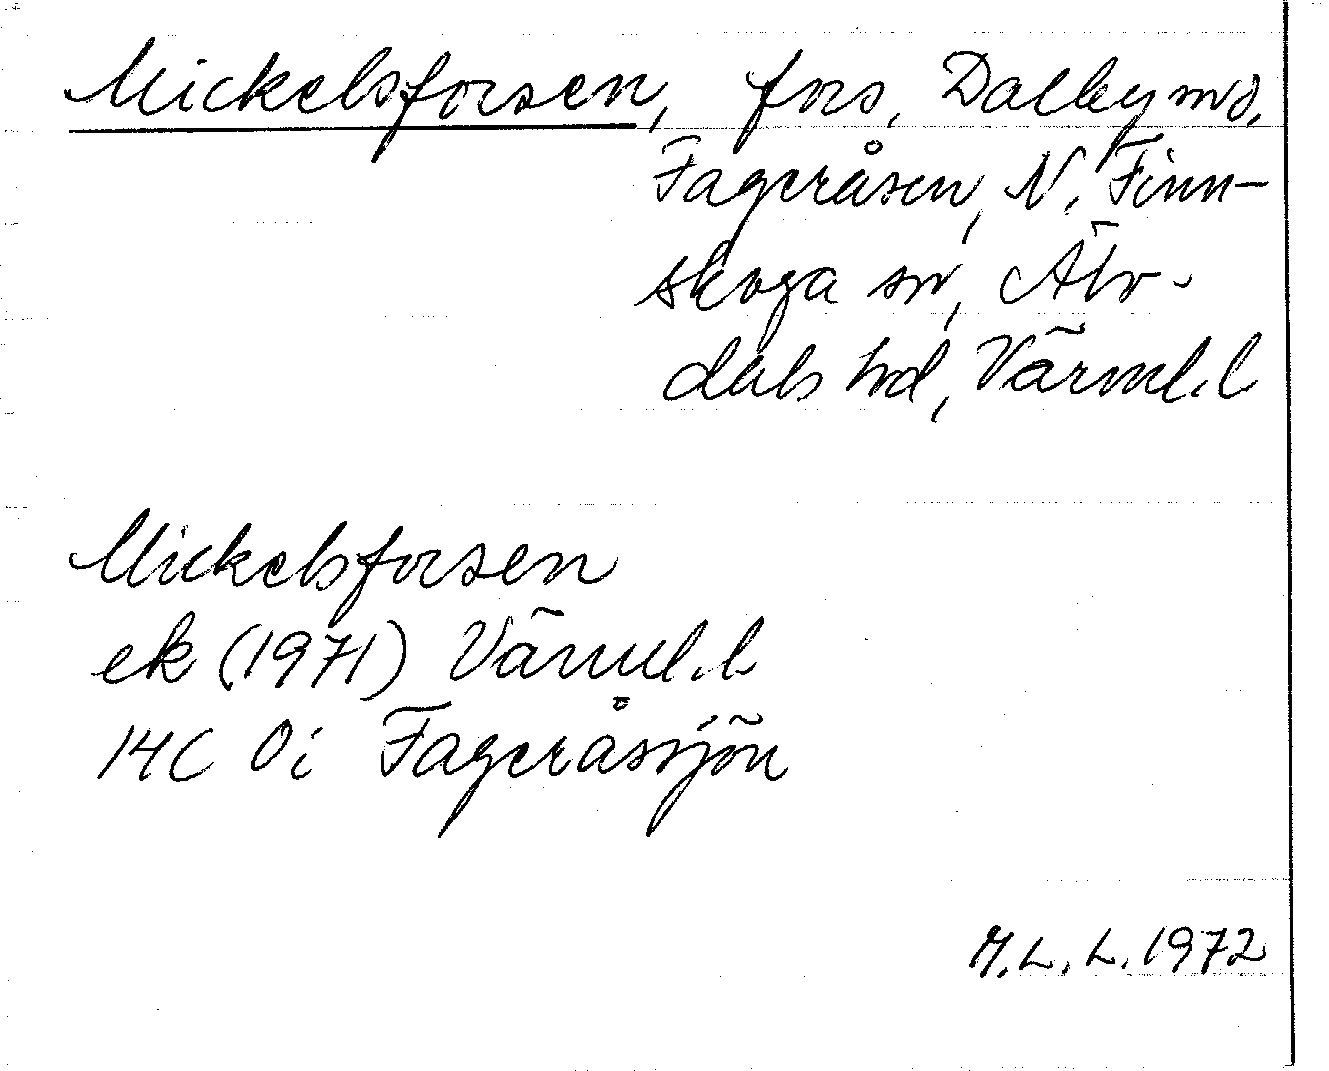 Mickelsforsen, fors, Dalby md,
Fageråsen, N. Finn-
skoga sn, Älv-
dals hd, Värml. l
Mickelsforsen
ek (1971) Värml. l.
14C 0i Fageråssjön
M.L.L. 1972